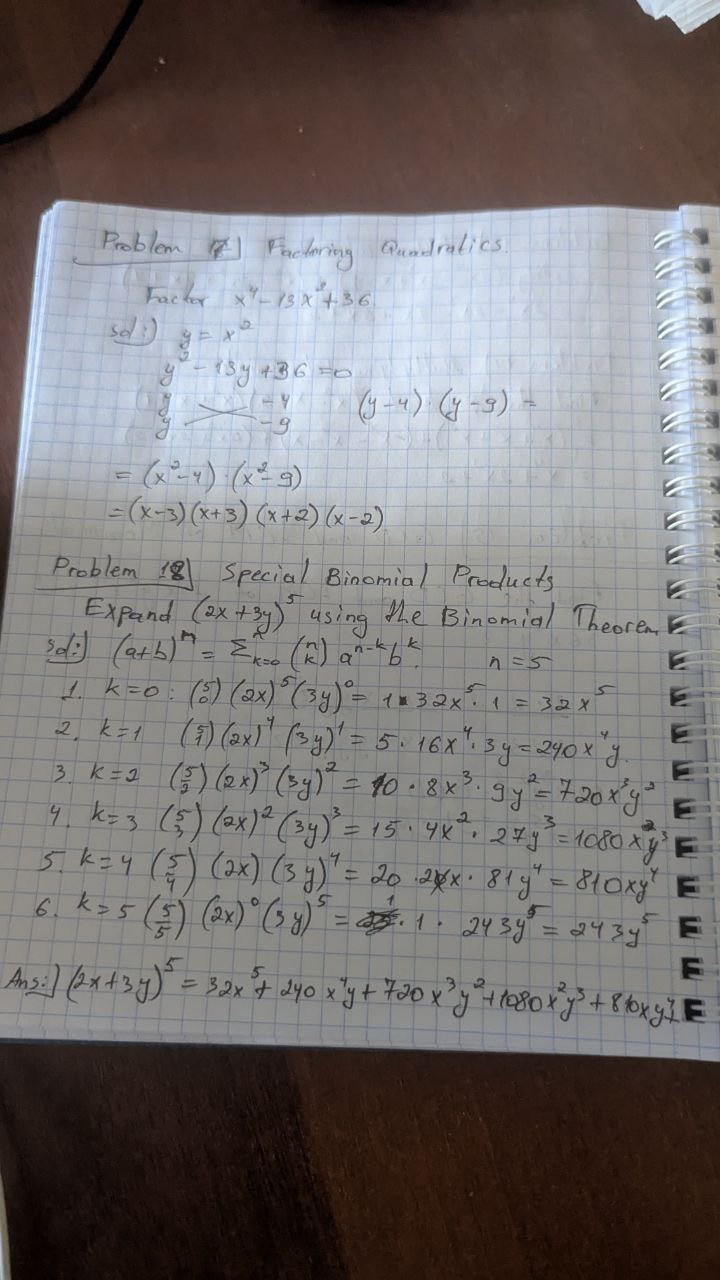 Problem 17 Factoring Quadratics.
Factor x⁴ - 13x² + 36.
sol:) y = x²
y² - 13y + 36 = 0
y -4 (y-4)·(y-9) =
y -9
= (x²-4)·(x²-9)
= (x-3)(x+3)(x+2)(x-2)
Problem 18 Special Binomial Products
Expand (2x+3y)⁵ using the Binomial Theorem
sol:) (a+b)ⁿ = Σⁿₖ₌₀ (n k) aⁿ⁻ᵏbᵏ. n=5
1. k=0: (5 0)(2x)⁵(3y)⁰ = 1·32x⁵·1 = 32x⁵
2. k=1 (5 1)(2x)⁴(3y)¹ = 5·16x⁴·3y = 240x⁴y.
3. k=2 (5 2)(2x)³(3y)² = 10·8x³·9y² = 720x³y²
4. k=3 (5 3)(2x)²(3y)³ = 15·4x²·27y³ = 1080x²y³
5. k=4 (5 4)(2x)(3y)⁴ = 20·2x·81y⁴ = 810xy⁴
6. k=5 (5 5)(2x)⁰(3y)⁵ = 1·1·243y⁵ = 243y⁵
Ans:) (2x+3y)⁵ = 32x⁵ + 240x⁴y + 720x³y² + 1080x²y³ + 810xy⁴ +